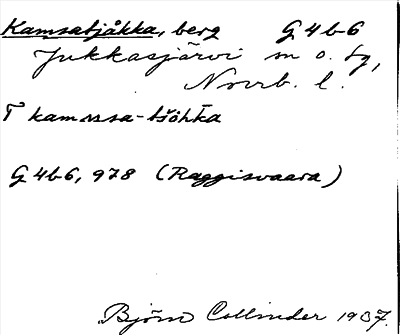 Kamsatjåkka, berg G 4 b 6
Jukkasjärvi sn o. tg,
Norrb. l.
T kamssa-tšöhka
G 4 b 6, 978 (Raggisvaara)
Björn Collinder 1937.